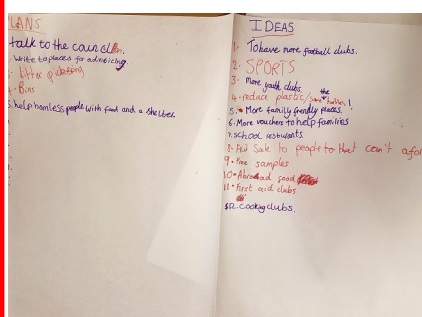 LANS
talk to the council.
Write to places for advertising.
Litter picking
4. Bins
5. help homless people with food and a shelter
IDEAS
1. To have more football clubs.
2. SPORTS
3. More youth clubs.
4. reduce plastic/save the turtles!
5. More family friendly places.
6. More vouchers to help families
7. school restaurants.
8. Food Sale to people to that can't afor
9. Free samples
10. Abroad food
11. First aid clubs
12. Cooking clubs.